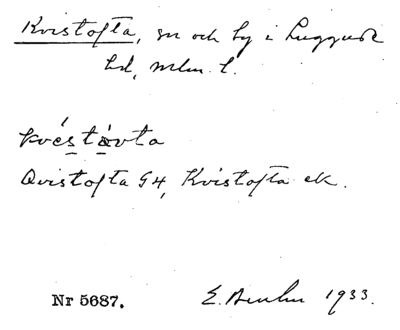 Kvistofta, sn och by i Luggude
hd, mlm. l.
kvéståvta
Qvistofta G4, Kvistofta ek.
Nr 5687. E. 1933.